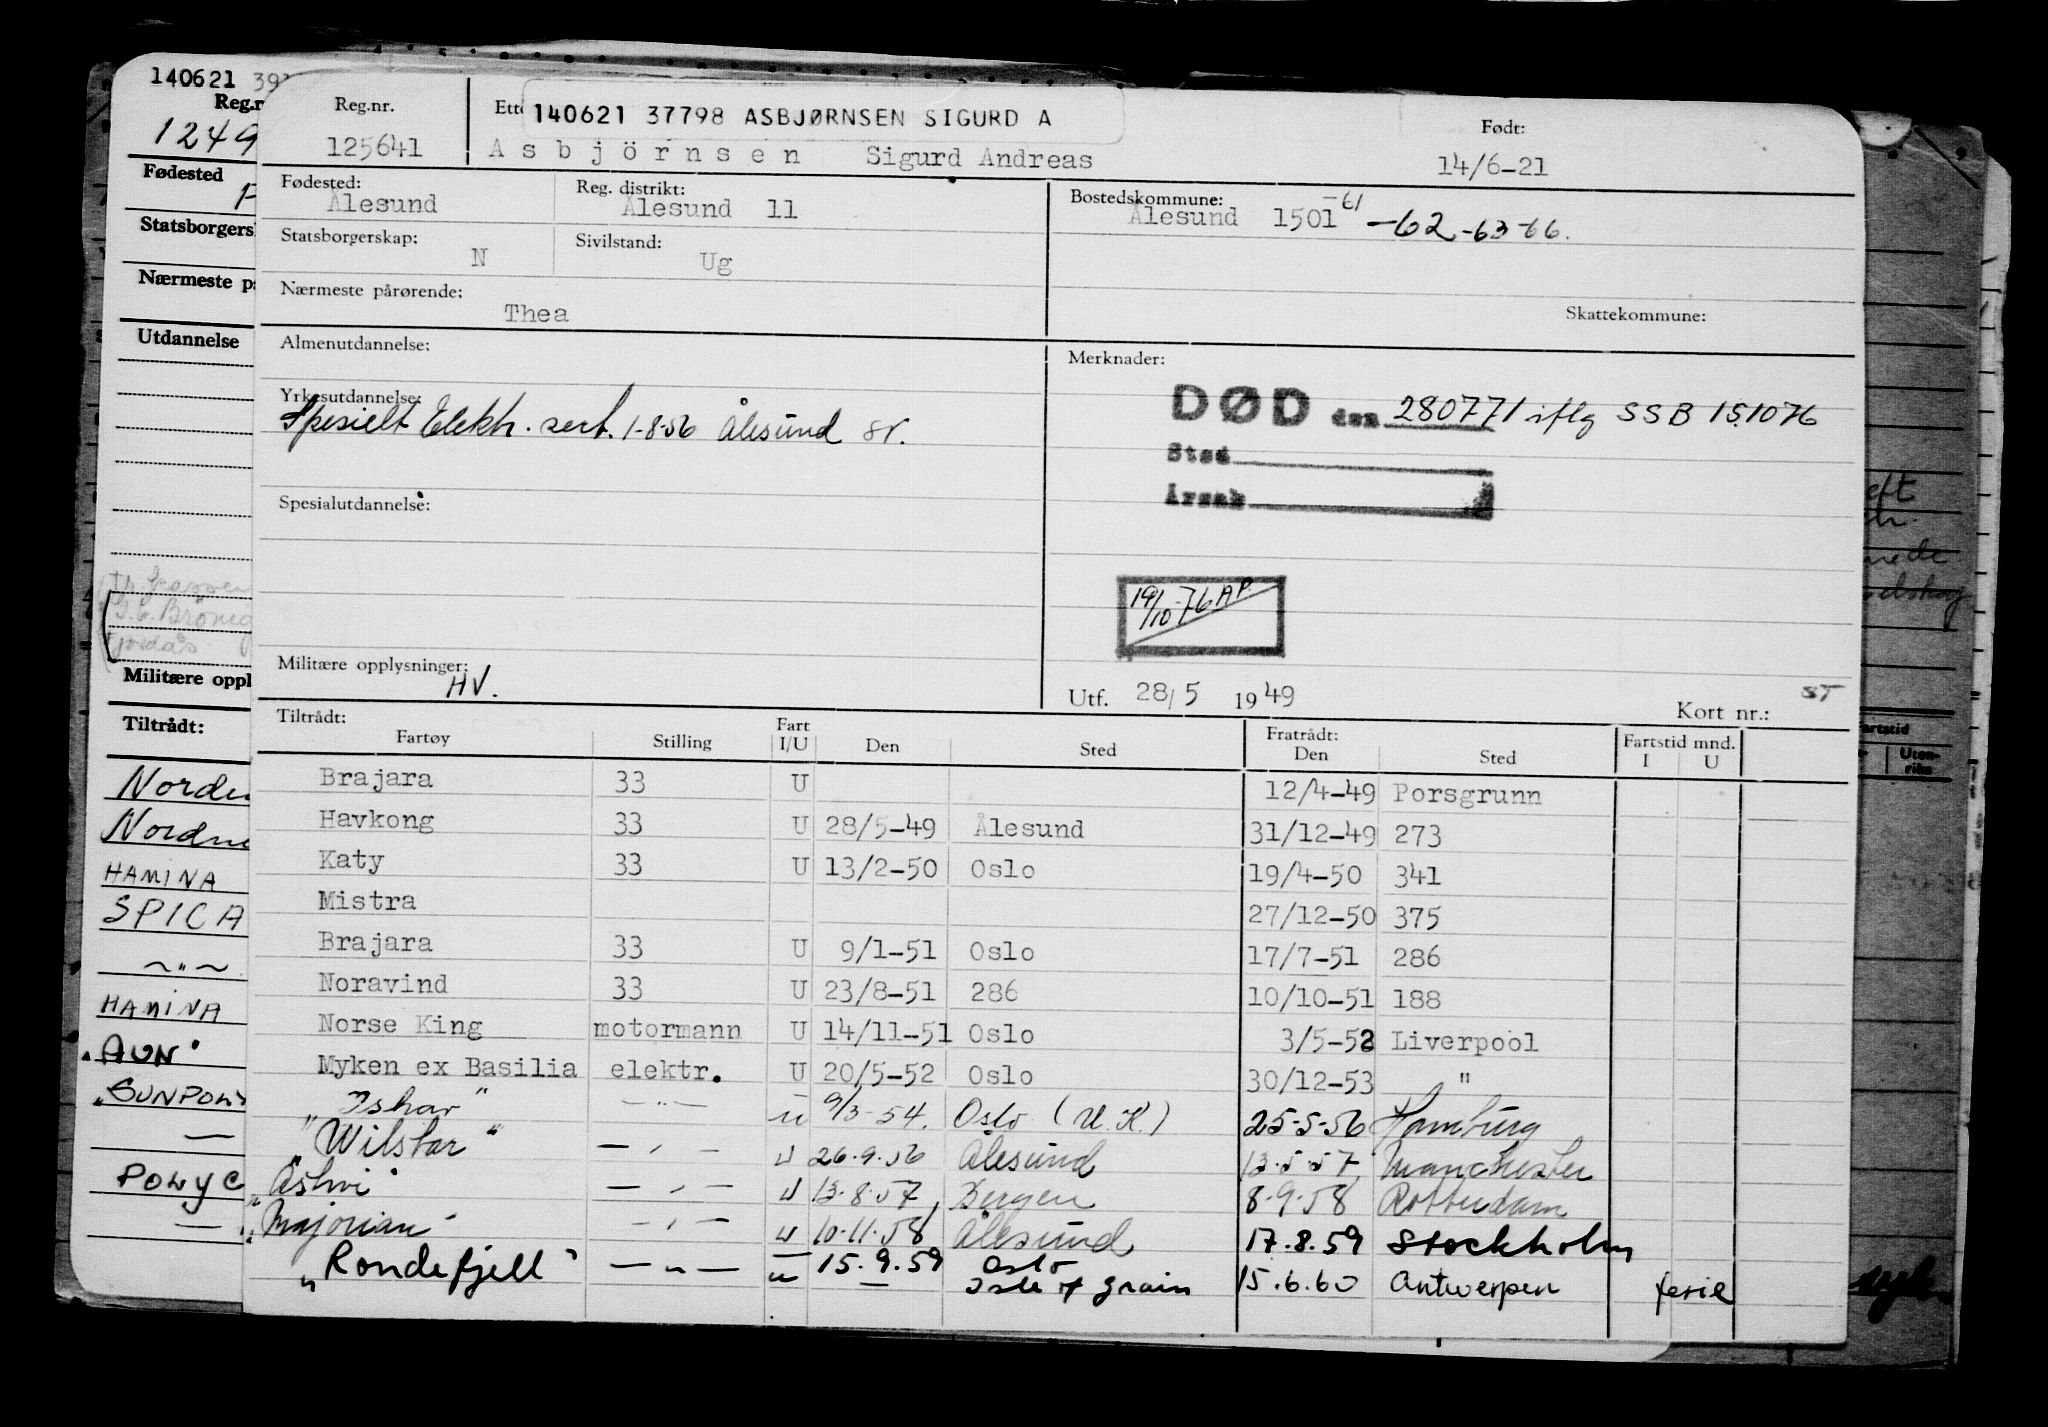 140621 39
Reg.nr.
1249
Fødested
Statsborgersk
Nærmeste på
Utdannelse
Militære oppl
Tiltrådt:
HAMINA
SPICA
HAMINA
"AUN"
Reg.nr.
125641
140621 37798 ASBJØRNSEN SIGURD A
Asbjörnsen Sigurd Andreas
Født:
14/6-21
Fødested:
Ålesund
Reg. distrikt:
Ålesund 11
Bostedskommune:
Ålesund 1501 -61 -62 -63 -66.
Statsborgerskap:
N
Sivilstand:
Ug
Nærmeste pårørende:
Thea
Skattekommune:
Almenutdannelse:
Merknader:
DØD den 280771 iflg SSB 151076
Sted
Årsak
Yrkesutdannelse:
Spesielt Elektr. sert. 1-8-56 Ålesund sr.
Spesialutdannelse:
19/10-76 AP.
Militære opplysninger:
HV.
Utf. 28/5 1949
Kort nr.:
ST
Tiltrådt: Fratrådt: Fartstid mnd.
Fartøy Stilling Fart I/U Den Sted Den Sted I U
Brajara 33 U 12/4-49 Porsgrunn
Havkong 33 U 28/5-49 Ålesund 31/12-49 273
Katy 33 U 13/2-50 Oslo 19/4-50 341
Mistra 27/12-50 375
Brajara 33 U 9/1-51 Oslo 17/7-51 286
Noravind 33 U 23/8-51 286 10/10-51 188
Norse King motormann U 14/11-51 Oslo 3/5-52 Liverpool
Myken ex Basilia elektr. U 20/5-52 Oslo 30/12-53 "
"Ishav" — " — u 9/3-54. Oslo (U.K.) 25-5-56 Hamburg
"Wilstar" — " — u 26.9.56 Ålesund 13.5.57 Manchester
"Åshvi" — " — u 13.8.57 Bergen 8.9.58 Rotterdam
"Majorian" — " — u 10.11.58 Ålesund 17.8.59 Stockholm
"Rondefjell" — " — u 15.9.59 Oslo
u — Isle of grain 15.6.60 Antwerpen ferie